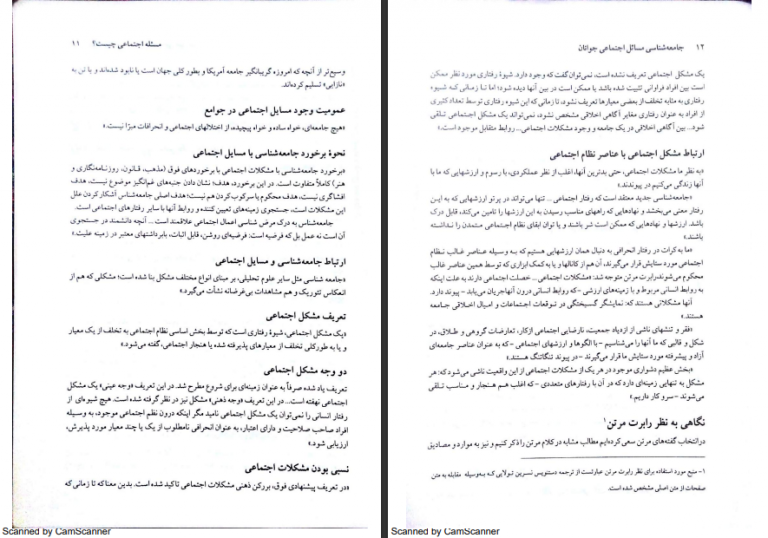 مسئله اجتماعی چیست؟ ۱۱
وسیع‌تر از آنچه که امروزه گریبانگیر جامعه آمریکا و بطور کلی جهان است یا نابود شده‌اند و یا تن به
«نازایی» تسلیم کرده‌اند.
عمومیت وجود مسایل اجتماعی در جوامع
«هیچ جامعه‌ای، خواه ساده و خواه پیچیده، از اختلالهای اجتماعی و انحرافات مبرّا نیست.»
نحوهٔ برخورد جامعه‌شناسی با مسایل اجتماعی
«برخورد جامعه‌شناسی با مشکلات اجتماعی با برخوردهای فوق (مذهب، قانون، روزنامه‌نگاری و
هنر) کاملاً متفاوت است. در این برخورد، هدف؛ نشان دادن جنبه‌های غم‌انگیز موضوع نیست، هدف
افشاگری نیست، هدف محکوم یا سرکوب کردن هم نیست؛ هدف اصلی جامعه‌شناس آشکار کردن علل
این مشکلات است، جستجوی زمینه‌های تعیین کننده و روابط آنها با سایر رفتارهای اجتماعی است.
جامعه‌شناس به درک مرض شناسی اعمال اجتماعی علاقمند است... آنچه دانشمند در جستجوی
آن است نه عمل بل که فرضیه است، فرضیه‌ای روشن، قابل اثبات، بابرداشتهای معتبر در زمینه علیت.»
ارتباط جامعه‌شناسی و مسایل اجتماعی
«جامعه شناسی مثل سایر علوم تحلیلی، بر مبنای انواع مختلف مشکل بنا شده است؛ مشکلی که هم از
انعکاس تئوریک و هم مشاهدات بی‌غرضانه نشأت می‌گیرد.»
تعریف مشکل اجتماعی
«یک مشکل اجتماعی، شیوهٔ رفتاری است که توسط بخش اساسی نظام اجتماعی به تخلف از یک معیار
و یا به طور کلی تخلف از معیارهای پذیرفته شده یا هنجار اجتماعی، گفته می‌شود.»
دو وجه مشکل اجتماعی
تعریف یاد شده صرفاً به عنوان زمینه‌ای برای شروع مطرح شد. در این تعریف «وجه عینی» یک مشکل
اجتماعی نهفته است... در این تعریف «وجه ذهنی» مشکل نیز در نظر گرفته شده است. هیچ شیوه‌ای از
رفتار انسانی را نمی‌توان یک مشکل اجتماعی نامید مگر اینکه درون نظم اجتماعی موجود، به وسیله
افراد صاحب صلاحیت و دارای اعتبار، به عنوان انحرافی نامطلوب از یک یا چند معیار مورد پذیرش،
ارزیابی شود.»
نسبی بودن مشکلات اجتماعی
«در تعریف پیشنهادی فوق، بر رکن ذهنی مشکلات اجتماعی تاکید شده است. بدین معنا که تا زمانی که
Scanned by CamScanner
۱۲ جامعه‌شناسی مسائل اجتماعی جوانان
یک مشکل اجتماعی تعریف نشده است، نمی‌توان گفت که وجود دارد. شیوهٔ رفتاری مورد نظر ممکن
است بین افراد فراوانی تثبیت شده باشد یا ممکن است در بین آنها دیده شود؛ اما تا زمانی که شیوه
رفتاری به مثابه تخلف از بعضی معیارها تعریف نشود، تا زمانی که این شیوه رفتاری توسط تعداد کثیری
از افراد به عنوان رفتاری مغایر آگاهی اخلاقی مشخص نشود، نمی‌تواند یک مشکل اجتماعی تلقی
شود... بین آگاهی اخلاقی در یک جامعه و وجود مشکلات اجتماعی... روابط متقابل موجود است.»
ارتباط مشکل اجتماعی با عناصر نظام اجتماعی
«به نظر ما مشکلات اجتماعی، حتی بدترین آنها، اغلب از نظر عملکردی، با رسوم و ارزشهایی که ما با
آنها زندگی می‌کنیم در پیوندند.»
«جامعه‌شناسی جدید معتقد است که رفتار اجتماعی ... تنها می‌تواند در پرتو ارزشهایی که به این
رفتار معنی می‌بخشد و نهادهایی که راههای مناسب رسیدن به این ارزشها را تامین می‌کند، قابل درک
باشد. ارزشها و نهادهایی که ممکن است شر باشند و یا توان ابقای نظام اجتماعی متمدن را نداشته
باشند.»
«ما به کرات در رفتار انحرافی به دنبال همان ارزشهایی هستیم که به وسیله عناصر غالب نظام
اجتماعی مورد ستایش قرار می‌گیرند، آن هم از کانالها و یا به کمک ابزاری که توسط همین عناصر غالب
محکوم می‌شوند. رابرت مرتن متوجه شد: «مشکلات اجتماعی... خصلت اجتماعی دارند به علت اینکه
به روابط انسانی مربوط و با زمینه‌های ارزشی -که روابط انسانی درون آنها جریان می‌یابد- پیوند دارد.
آنها مشکلاتی هستند که: نمایشگر گسیختگی در توقعات اجتماعات و امیال اخلاقی جامعه
هستند.»
«فقر و تنشهای ناشی از ازدیاد جمعیت، نارضایی اجتماعی ازکار، تعارضات گروهی و طلاق، در
شکل و قالبی که ما آنها را می‌شناسیم - با الگوها و ارزشهای اجتماعی -که به عنوان عناصر جامعه‌ای
آزاد و پیشرفته مورد ستایش ما قرار می‌گیرند - در پیوند تنگاتنگ هستند.»
«بخش عظیم دشواری موجود در هر یک از مشکلات اجتماعی از این واقعیت ناشی می‌شود که: هر
مشکل به تنهایی زمینه‌ای دارد که در آن با رفتارهای متعددی -که اغلب هم هنجار و مناسب تلقی
می‌شوند - سر و کار داریم.»
نگاهی به نظر رابرت مرتن۱
در انتخاب گفته‌های مرتن سعی کرده‌ایم مطالب مشابه در کلام مرتن را ذکر کنیم و نیز به موارد و مصادیق
۱- منبع مورد استفاده برای نظر رابرت مرتن عبارتست از ترجمه دستنویس نسرین تولایی که بوسیله مقابله به متن
صفحات از متن اصلی مشخص شده است.
Scanned by CamScanner